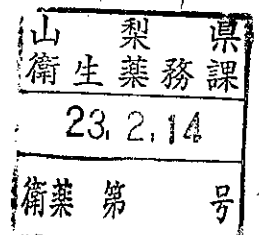 山梨県
衛生薬務課
23.2.14
衛薬第　号